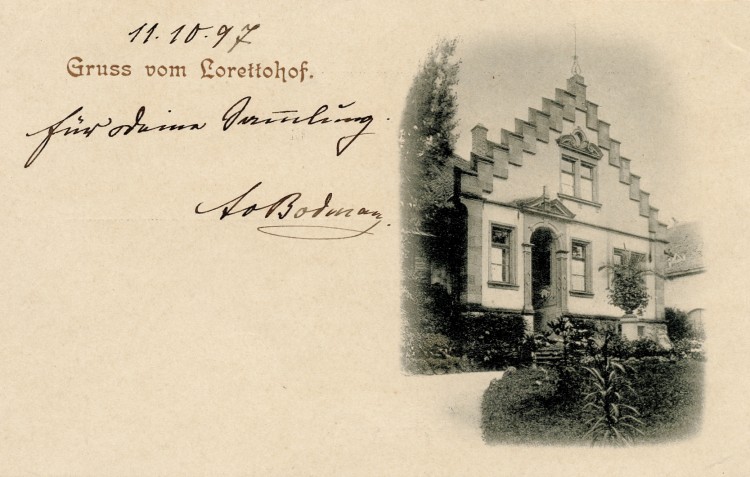 11.10.97
Gruss vom Lorettohof.
für Deine Sammlung.
Bodman